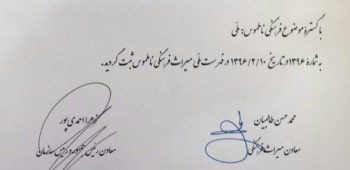 با گسترهٔ موضوع فرهنگی ناملموس: ملی
به شمارهٔ ۱۳۹۶ در تاریخ ۱۳۹۶/۲/۱۰ در فهرست ملی میراث فرهنگی ناملموس ثبت گردید.
محمد حسن طالبیان
معاون میراث فرهنگی
زهرا احمدی پور
معاون رئیس جمهور و رئیس سازمان